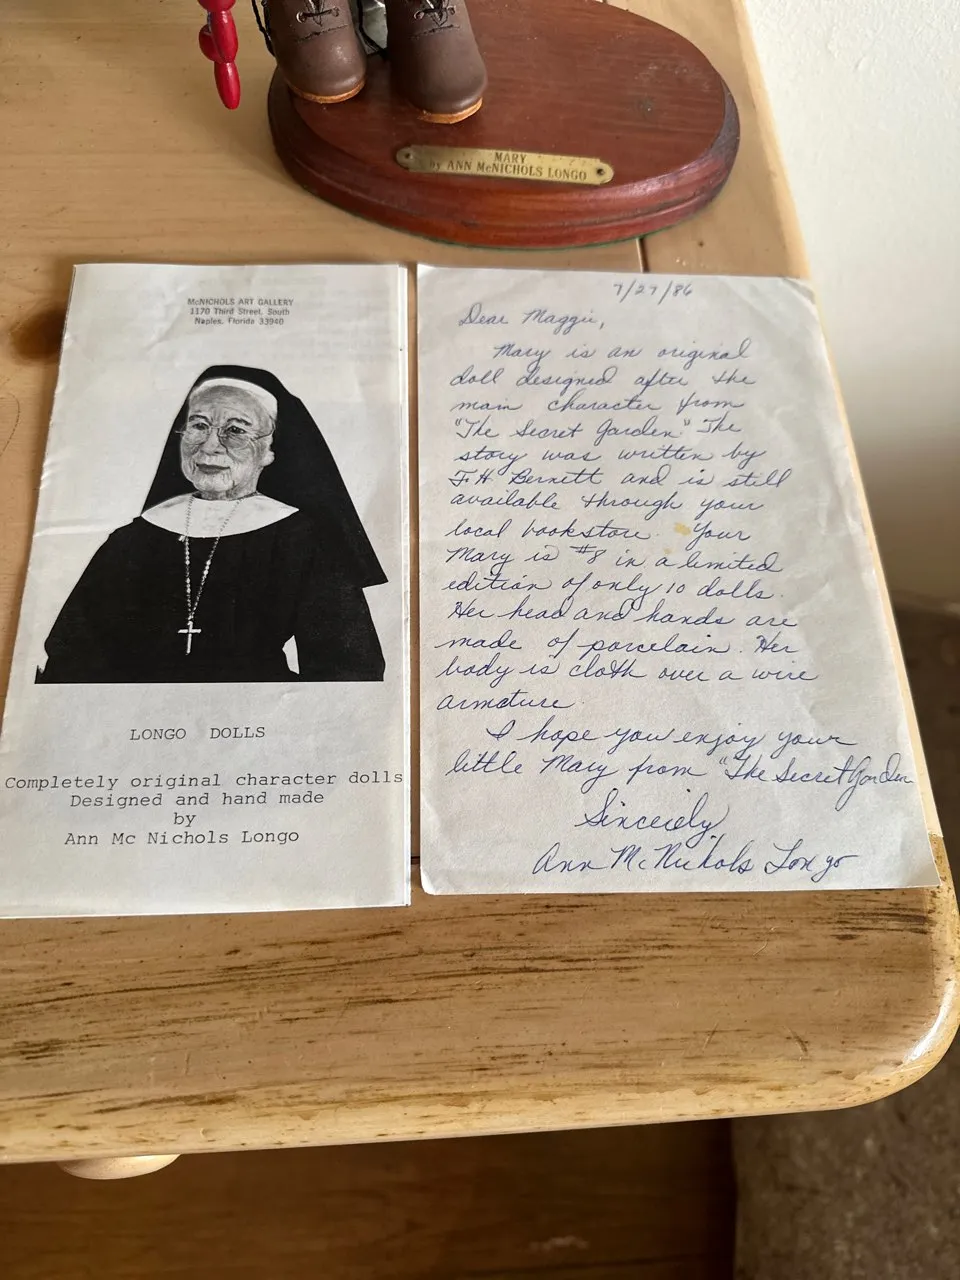 MARY
by ANN McNICHOLS LONGO
McNICHOLS ART GALLERY
1170 Third Street, South
Naples, Florida 33940
LONGO DOLLS
Completely original character dolls
Designed and hand made
by
Ann Mc Nichols Longo
7/27/86
Dear Maggie,
Mary is an original
doll designed after the
main character from
"The Secret Garden" The
story was written by
F H Bernett and is still
available through your
local bookstore. Your
Mary is #8 in a limited
edition of only 10 dolls.
Her head and hands are
made of porcelain. Her
body is cloth over a wire
armature.
I hope you enjoy your
little Mary from "The Secret Garden
Sincerely,
Ann McNichols Longo